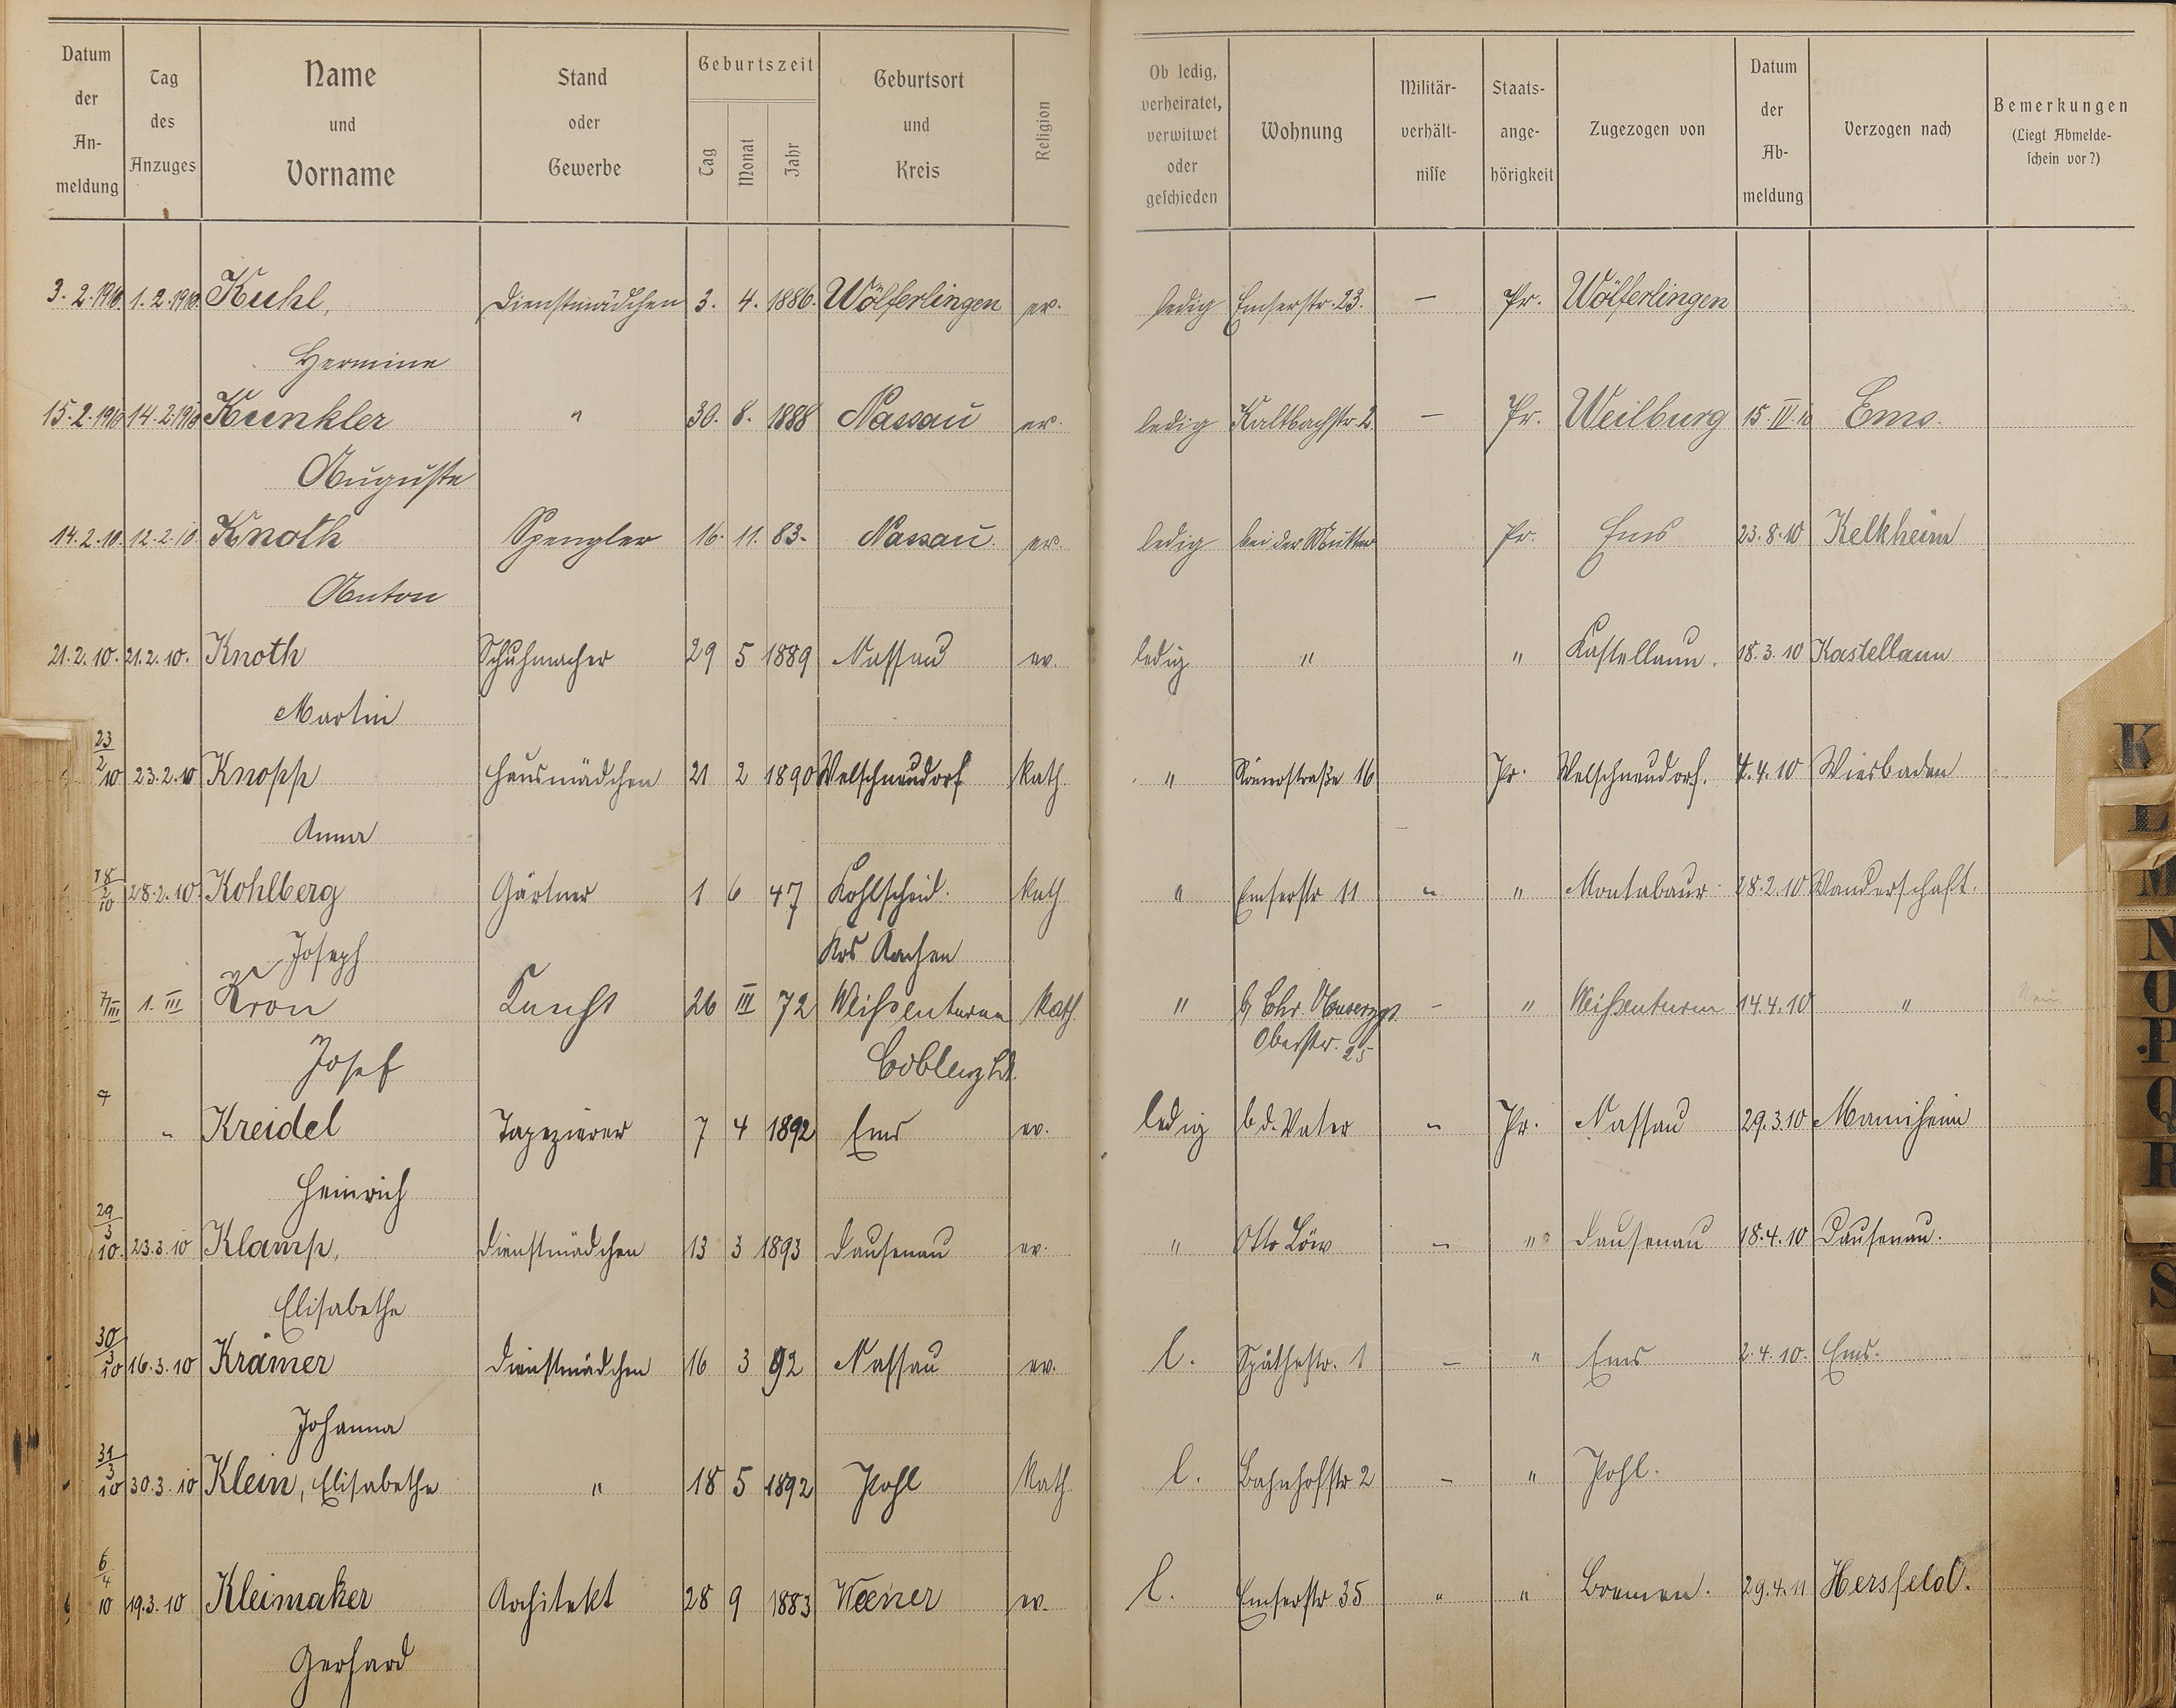 Datum der An- meldung | Tag des Anzuges | Name und Vorname | Stand oder Gewerbe | Geburtszeit Tag Monat Jahr | Geburtsort und Kreis | Religion | Ob ledig, verheiratet, verwitwet oder geschieden | Wohnung | Militär- verhält- nisse | Staats- ange- hörigkeit | Zugezogen von | Datum der Ab- meldung | Verzogen nach | Bemerkungen (Liegt Abmelde- schein vor?)
3.2.1910. 1.2.1910 Kuhl, Dienstmädchen 3. 4. 1886. Wölferlingen ev. ledig Emserstr. 23. — Pr. Wölferlingen
Hermine
15.2.1910 14.2.1910 Kunkler " 30. 8. 1888 Nassau ev. ledig Kaltbachstr. 2 — Pr. Weilburg 15.IV.10 Ems.
Auguste
14.2.10. 12.2.10. Knoth Spengler 16. 11. 83. Nassau. ev. ledig bei der Mutter Pr. Ems 23.8.10 Kelkheim
Anton
21.2.10. 21.2.10. Knoth Schuhmacher 29 5 1889 Nassau ev. ledig " " Kastellaun. 18.3.10 Kastellaun
Martin
23/2 10 23.2.10 Knopp Hausmädchen 21 2 1890 Welschneudorf kath. " Römerstraße 16 Pr. Welschneudorf. 4.4.10 Wiesbaden
Anna
28/2 10 28.2.10. Kohlberg Gärtner 1 6 47 Kohlscheid. kath " Emserstr 11 " " Montabaur 28.2.10 Wanderschaft.
Joseph Krs Aachen
7/III 1. III Kron Knecht 26 III 72 Weißenturm kath. " b/ Chr. – " Weißenturm 14.4.10 "
Josef Coblenz Ld. Oberstr. 25
" Kreidel Tapezierer 7 4 1892 Ems ev. ledig b d. Vater " Pr. Nassau 29.3.10 Mannheim
Heinrich
29/3 10. 23.3.10 Klamp, Dienstmädchen 13 3 1893 Dausenau ev. " Otto Löw – " Dausenau 18.4.10 Dausenau.
Elisabethe
30/3 10 16.3.10 Krämer Dienstmädchen 16 3 92 Nassau ev. l. Späthestr. 1 – " Ems 2.4.10. Ems.
Johanna
31/3 10 30.3.10 Klein, Elisabethe " 18 5 1892 Pohl kath l. Bahnhofstr 2 – " Pohl.
6/4 10 19.3.10 Kleimaker Architekt 28 9 1883 Weener ev. l. Emserstr 35 " " Bremen. 29.4.11 Hersfeld.
Gerhard
K
L
M
N
O
P
Q
R
S